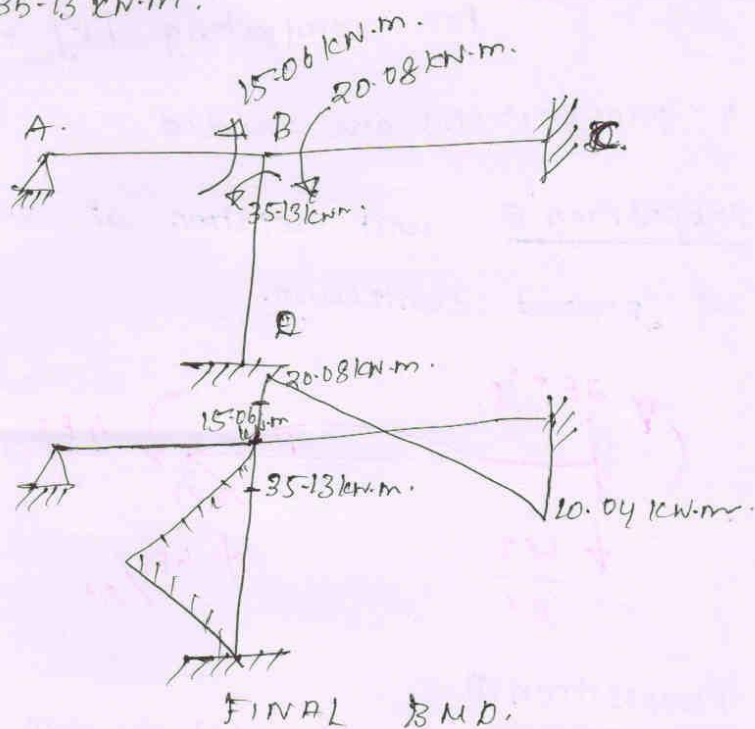 35-13 kN.m.
15.06 kN.m.
20.08 kN.m.
A.
B
C.
35-13 kNm.
D
20.08 kN.m.
15.06
kN.m
35-13 kN.m.
10.04 kN.m.
FINAL BMD.